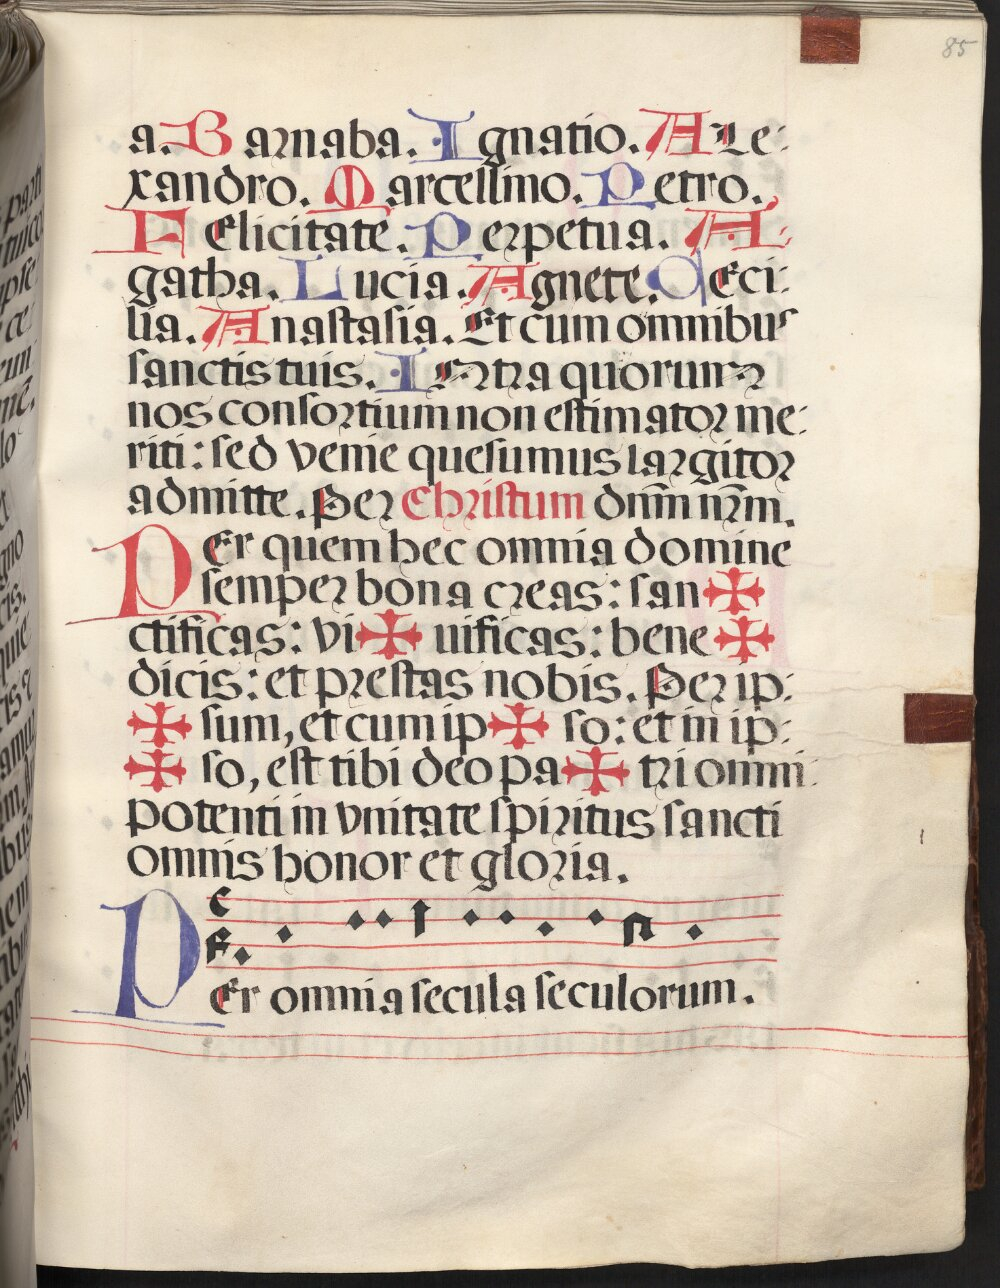 85
a. Barnaba. Ignatio. Ale-
xandro. Marcellino. Petro.
Felicitate. Perpetua. A-
gatha. Lucia. Agnete. Ceci-
lia. Anastasia. Et cum omnibus
sanctis tuis. Intra quorum
nos consortium non estimator me-
riti: sed venie quesumus largitor
admitte. Per Christum dn̄m nr̄m.
Per quem hec omnia domine
semper bona creas: san✠
ctificas: vi✠uificas: bene✠
dicis: et prestas nobis. Per ip-
✠sum, et cum ip✠so: et in ip-
✠so, est tibi deo pa✠tri omni
potenti in vnitate spiritus sancti
omnis honor et gloria.
Per omnia secula seculorum.